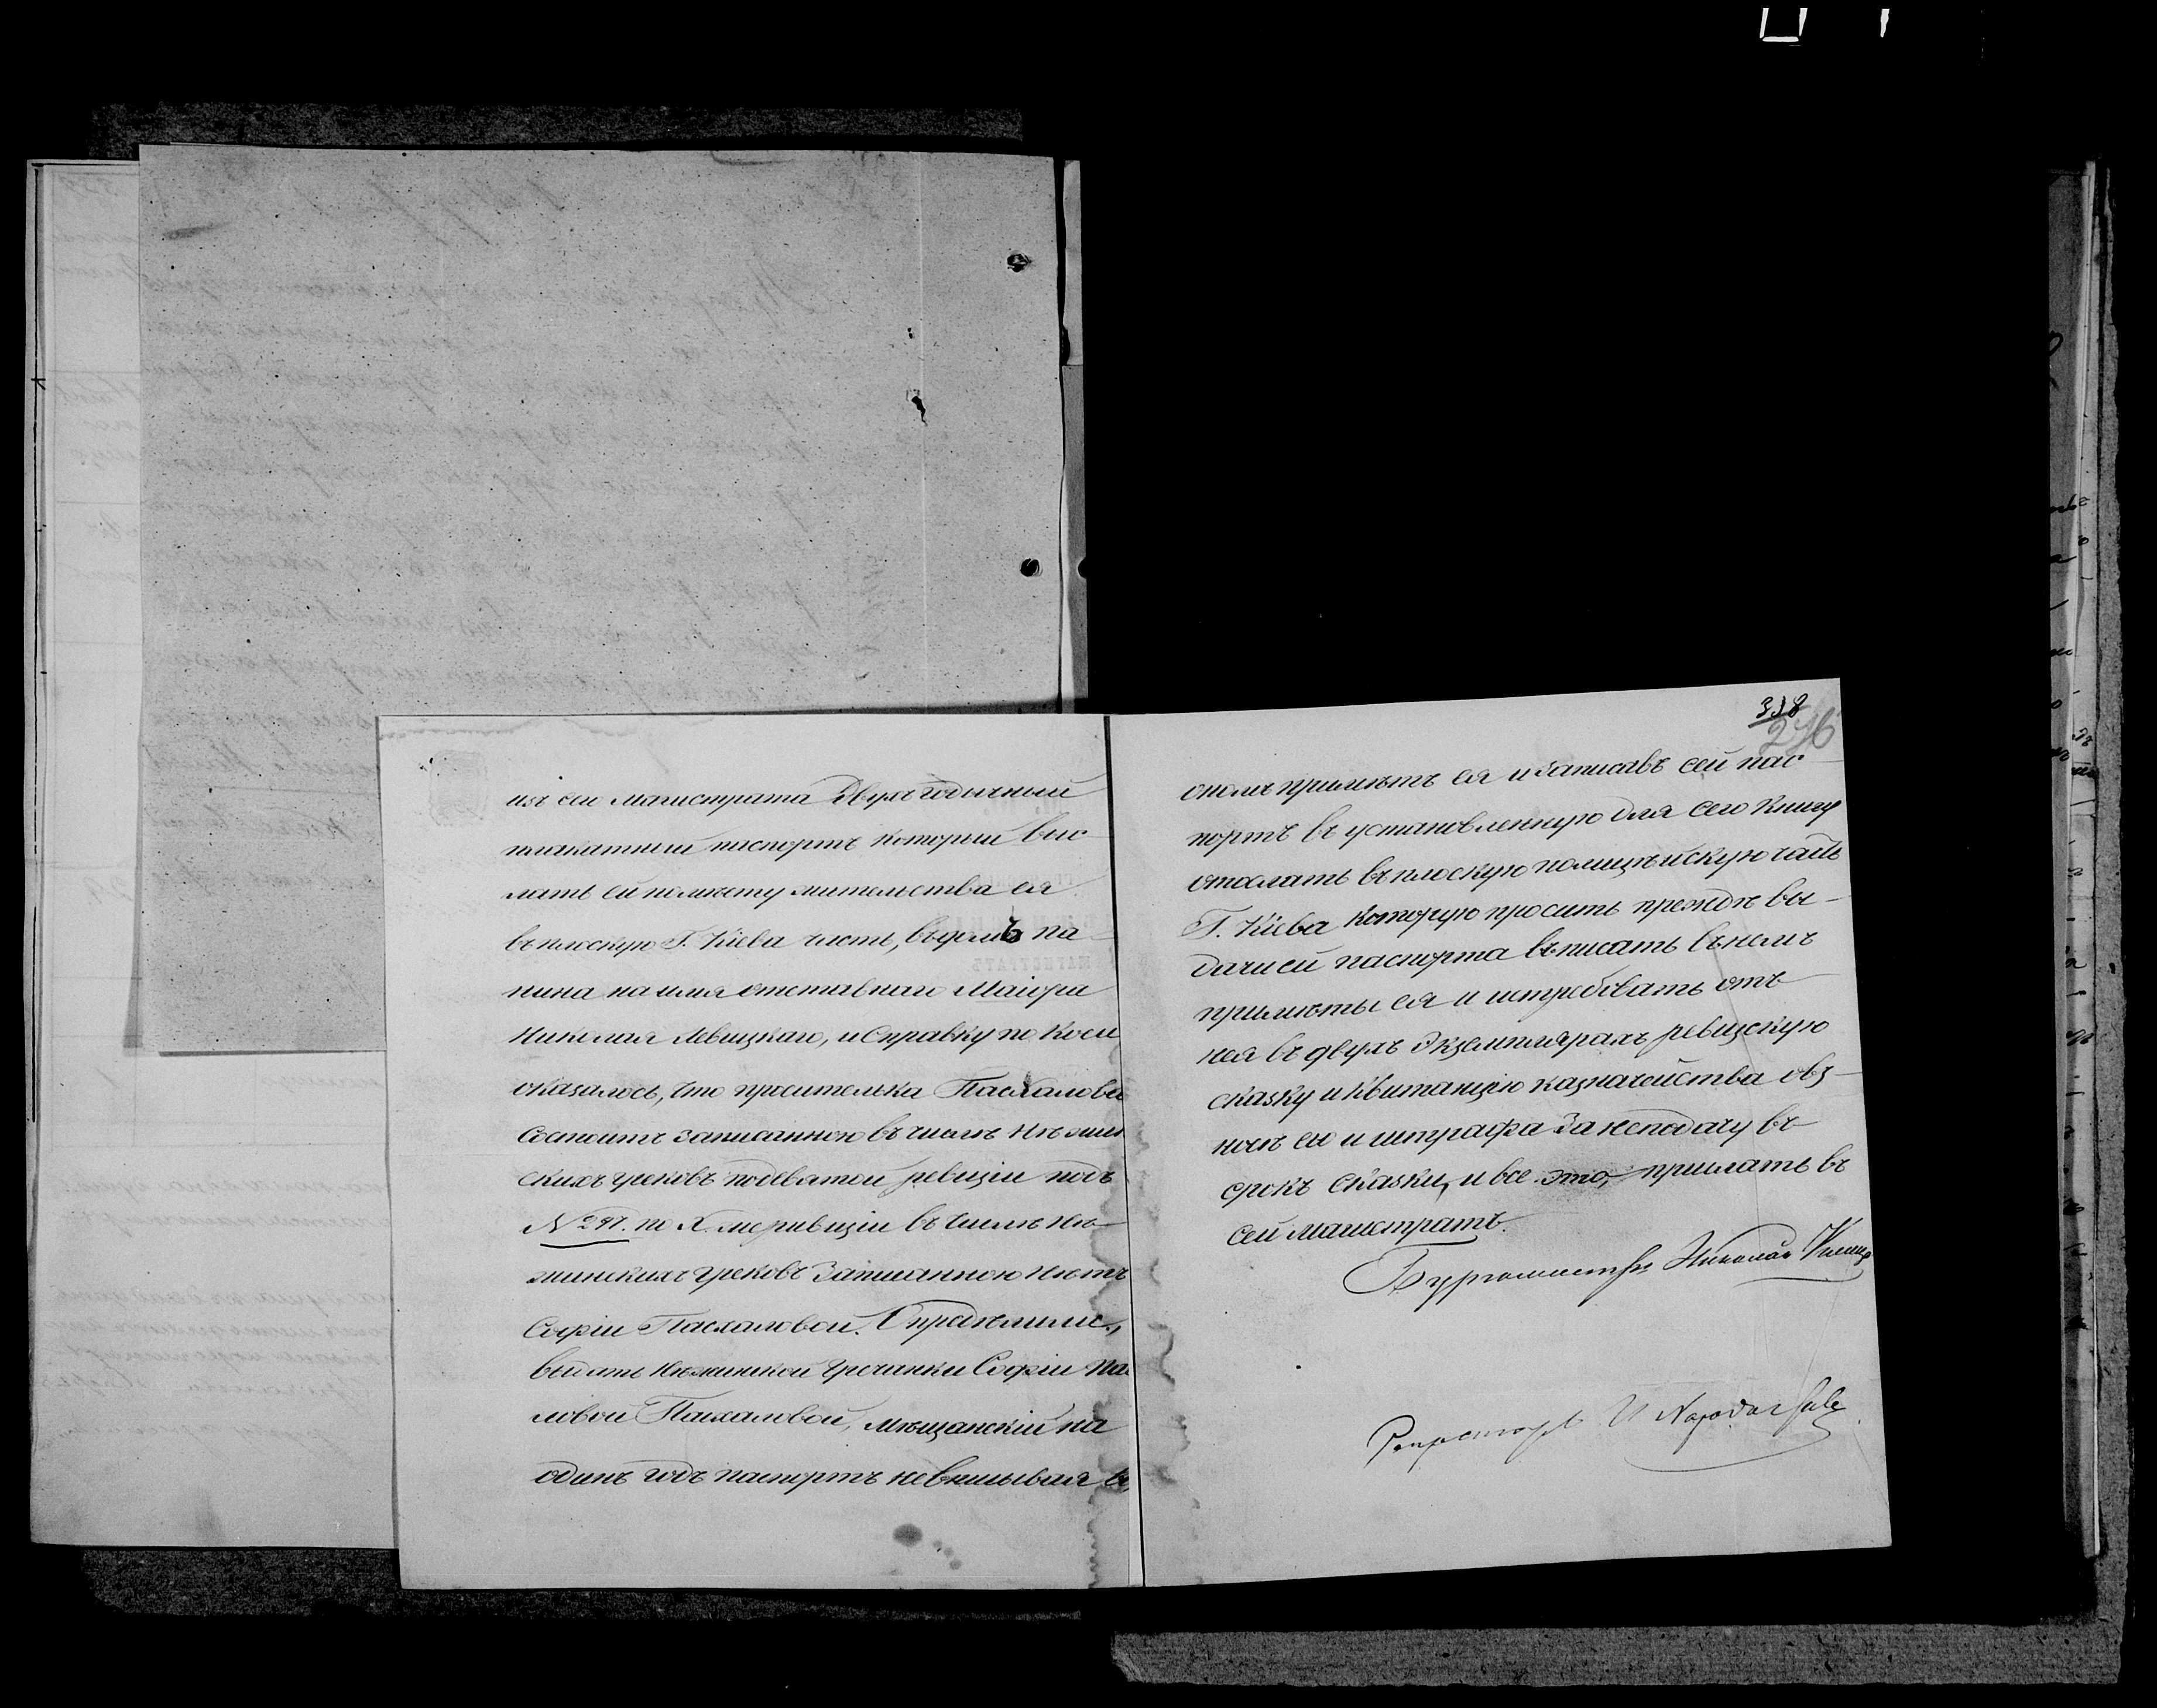 изъ сего Магистрата двухъгодичный
плакатный паспортъ который выс-
лать ей по месту жительства ея
въ плоскую Г. Кіева часть, въ домъ па
пина на имя отставнаго Маіора
Николая Левицкаго, и Справку по коей
оказалось, что просителька Пасхалова
Состоитъ записанною въ числе Нежин
скихъ грековъ по девятой ревизіи подъ
№ 297. по X. же ривизіи въ числе Не-
жинскихъ Грековъ Записанною Нетъ
Софіи Пасхаловой. Определили,
выдать Нежинской Гречанки Софіи Па
ловой Пасхаловой, мещанскій на
одинъ годъ паспортъ невписывая въ
318
276
ономъ приметъ ея и записавъ сей пас-
портъ въ установленную для сего Книгу
отослать въ плоскую полицейскую часть
Г. Кіева которую просить прежде вы-
дачи сей паспорта вписать въ немъ
приметы ея и истребовать отъ
нея въ двухъ Экземплярахъ ревизскую
сказку и Квитанцію казначейства овз-
носе ею и штрафа За неподачу въ
срокъ сказки, и все это, прислать въ
сей Магистратъ.
Бургомистръ Николай